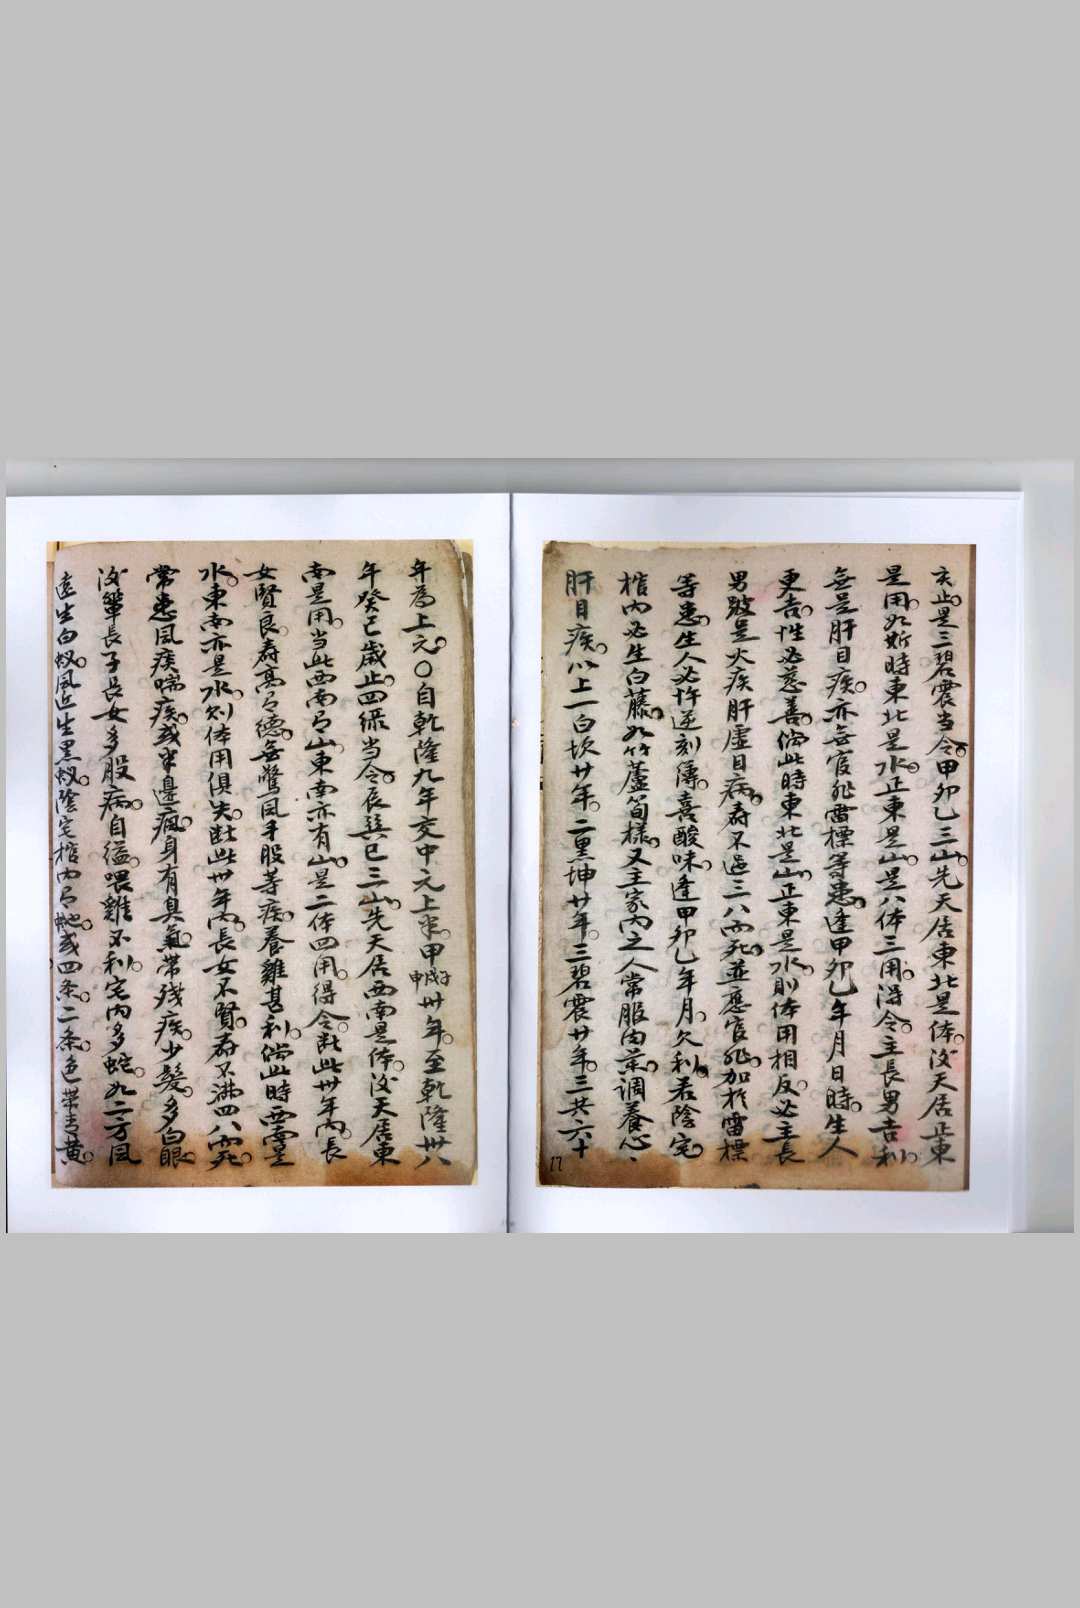 亥止是三碧震当令甲卯乙三山先天居東北是体後天居正東
是用如斯時東北是水正東是山是八体三用得令主長男吉利
無是肝目疾亦無官非雷標等患逢甲卯乙年月日時生人
更吉性必慈善倘此時東北是山正東是水則体用相反必主長
男跛是火疾肝虛目病壽不過三八而死並應官非加於雷標
等患生人必忤逆刻薄喜酸味逢甲卯乙年月欠利若陰宅
棺內必生白藤如竹蘆筍樣又主家內之人常服肉藥調養心
肝目疾以上一白坎廿年二黑坤廿年三碧震廿年三共六十
17
年為上元〇自乾隆九年交中元上半甲申甲戌廿年至乾隆廿八
年癸巳歲止四綠当令辰巽巳三山先天居西南是体後天居東
南是用当此西南有山東南亦有山是二体四用得令断此廿年內長
女賢良壽高有德無驚風手股等疾養雞甚利倘此時西南是
水東南亦是水則体用俱失断此廿年內長女不賢壽不滿四八而死
常患風疾喘疾或半邊瘋身有臭氣帶殘疾少髮多白眼
後輩長子長女多股病自縊喂雞不利宅內多蛇如二方風
遠生白蟻風近生黑蟻陰宅棺內有蛇或四条二条色帶青黃